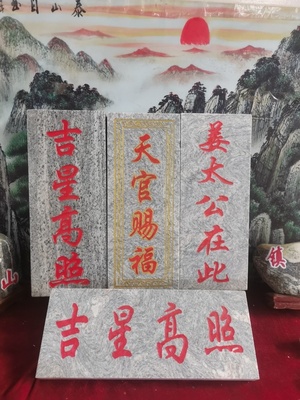 泰山日出
吉星高照
天官赐福
姜太公在此
山
镇
吉星高照